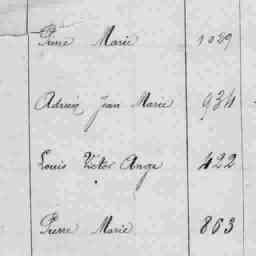 Pierre Marie 1029
Adrien Jean Marie 934
Louis Victor Ange 422
Pierre Marie 863